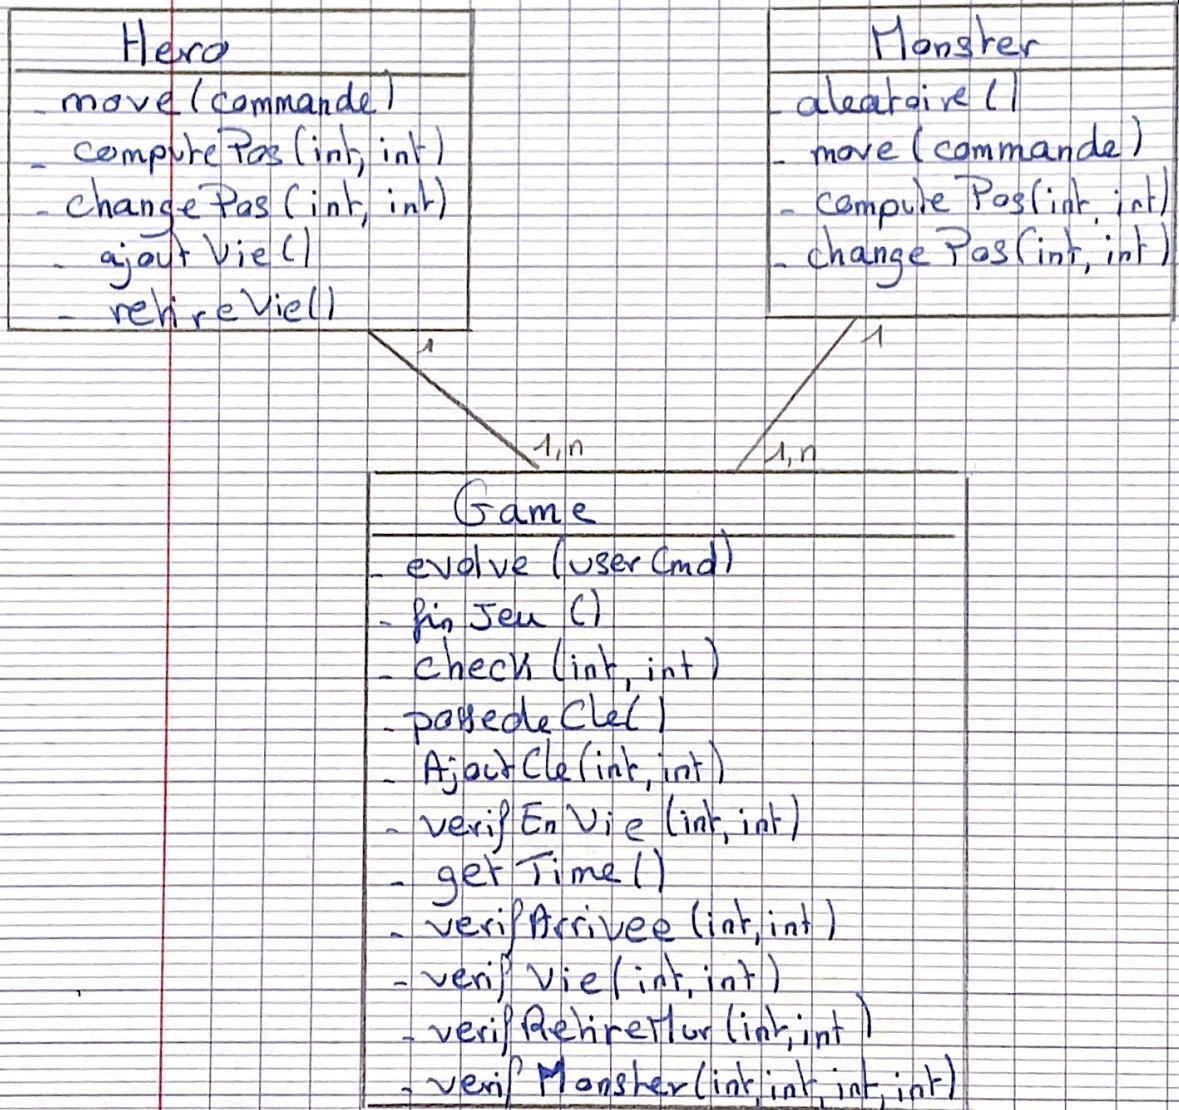 Hero
- move (commande)
- computePos (int, int)
- changePos (int, int)
- ajoutVie()
- retireVie()
Monster
- aleatoire ()
- move (commande)
- computePos(int, int)
- changePos(int, int)
1
1
1,n
1,n
Game
- evolve (userCmd)
- finJeu ()
- check (int, int)
- possedeCle()
- AjoutCle(int, int)
- verifEnVie (int, int)
- getTime()
- verifArrivee (int, int)
- verifVie (int, int)
- verifRetireMur (int, int)
- verifMonster(int, int, int, int)